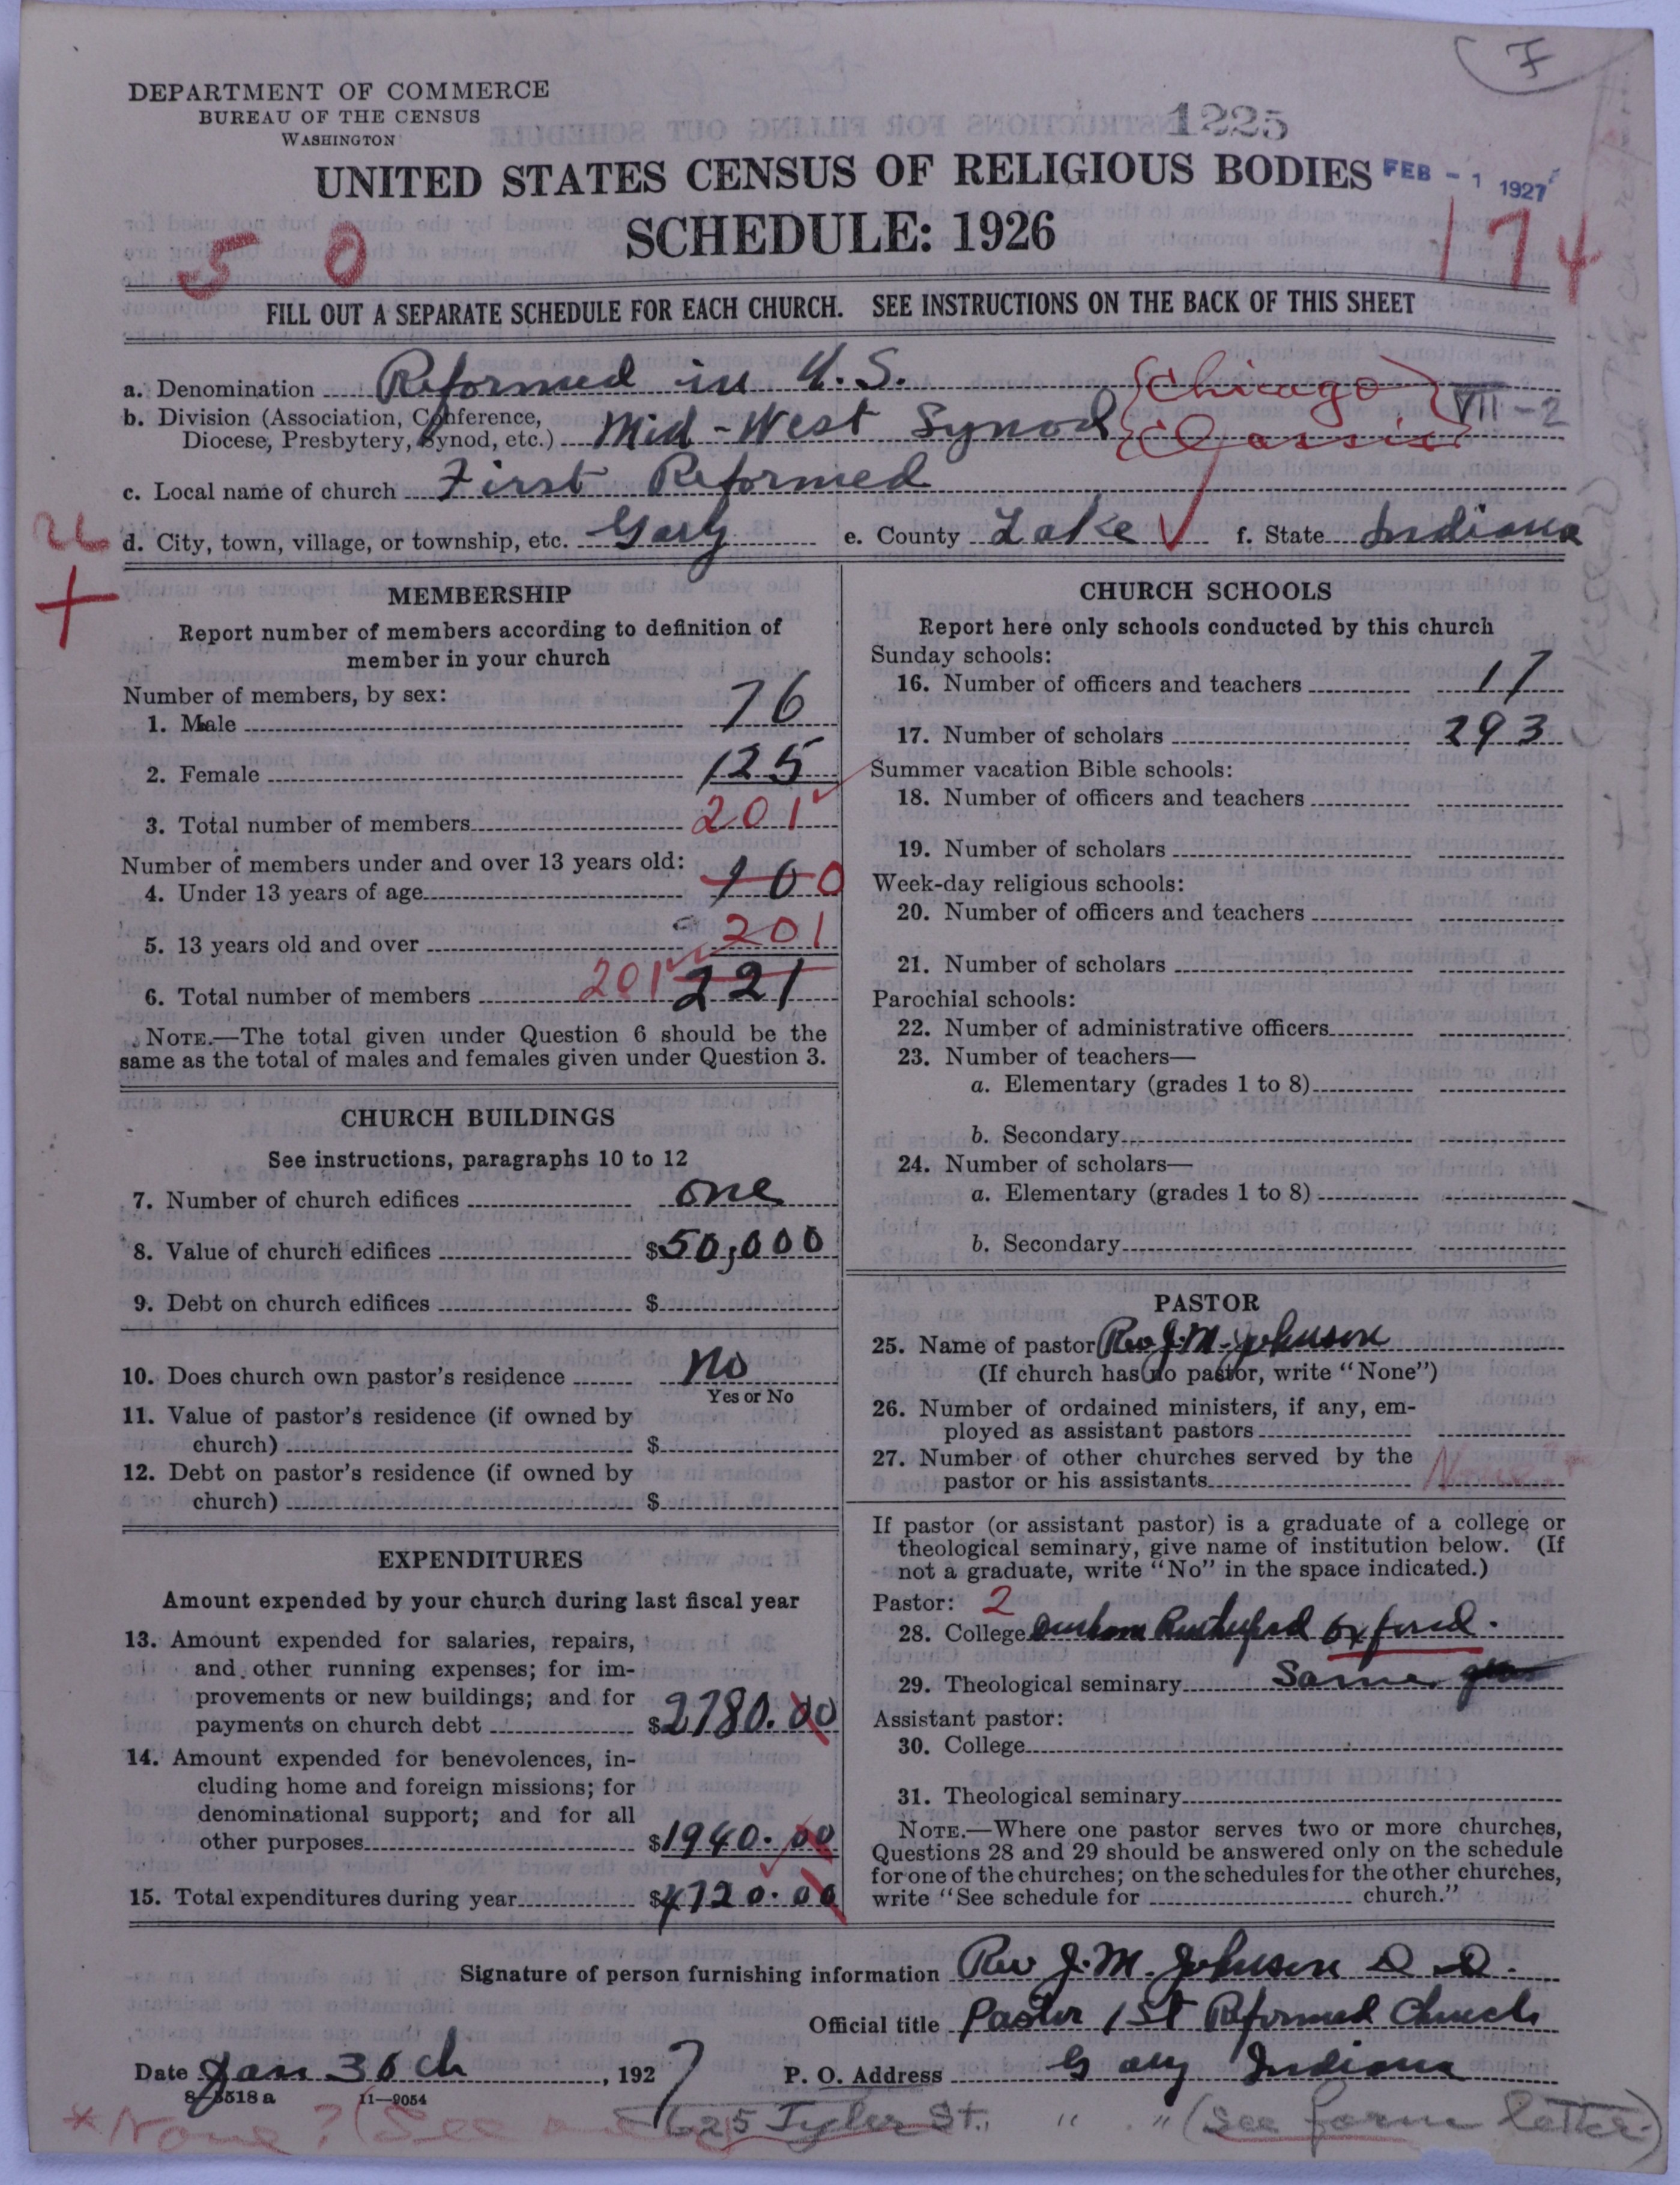 F
DEPARTMENT OF COMMERCE
BUREAU OF THE CENSUS
WASHINGTON
1225
UNITED STATES CENSUS OF RELIGIOUS BODIES
FEB - 1 1927
SCHEDULE: 1926
50
174
FILL OUT A SEPARATE SCHEDULE FOR EACH CHURCH. SEE INSTRUCTIONS ON THE BACK OF THIS SHEET
a. Denomination Reformed in U.S.
b. Division (Association, Conference,
Diocese, Presbytery, Synod, etc.) Mid-West Synod {Chicago Classis} VII-2
c. Local name of church First Reformed
d. City, town, village, or township, etc. Gary e. County Lake f. State Indiana
MEMBERSHIP
Report number of members according to definition of
member in your church
Number of members, by sex:
1. Male 76
2. Female 125
3. Total number of members 201
Number of members under and over 13 years old:
4. Under 13 years of age 100 0
5. 13 years old and over 201
6. Total number of members 201 221
NOTE.—The total given under Question 6 should be the
same as the total of males and females given under Question 3.
CHURCH BUILDINGS
See instructions, paragraphs 10 to 12
7. Number of church edifices one
8. Value of church edifices $50,000
9. Debt on church edifices $
10. Does church own pastor's residence no
Yes or No
11. Value of pastor's residence (if owned by
church) $
12. Debt on pastor's residence (if owned by
church) $
EXPENDITURES
Amount expended by your church during last fiscal year
13. Amount expended for salaries, repairs,
and other running expenses; for im-
provements or new buildings; and for
payments on church debt $2780.00
14. Amount expended for benevolences, in-
cluding home and foreign missions; for
denominational support; and for all
other purposes $1940.00
15. Total expenditures during year $4720.00
CHURCH SCHOOLS
Report here only schools conducted by this church
Sunday schools:
16. Number of officers and teachers 17
17. Number of scholars 293
Summer vacation Bible schools:
18. Number of officers and teachers
19. Number of scholars
Week-day religious schools:
20. Number of officers and teachers
21. Number of scholars
Parochial schools:
22. Number of administrative officers
23. Number of teachers—
a. Elementary (grades 1 to 8)
b. Secondary
24. Number of scholars—
a. Elementary (grades 1 to 8)
b. Secondary
PASTOR
25. Name of pastor Rev J. M. Johnson
(If church has no pastor, write "None")
26. Number of ordained ministers, if any, em-
ployed as assistant pastors
27. Number of other churches served by the
pastor or his assistants None? *
If pastor (or assistant pastor) is a graduate of a college or
theological seminary, give name of institution below. (If
not a graduate, write "No" in the space indicated.)
Pastor: 2
28. College Rutherford Oxford.
29. Theological seminary Same
Assistant pastor:
30. College
31. Theological seminary
NOTE.—Where one pastor serves two or more churches,
Questions 28 and 29 should be answered only on the schedule
for one of the churches; on the schedules for the other churches,
write "See schedule for church."
Signature of person furnishing information Rev J. M. Johnson D D.
Official title Pastor 1st Reformed Church
Date Jan 30th, 1927 P. O. Address Gary Indiana
8-5518a 11-9054
* None? (See 625 Tyler St., " " (See form letter)